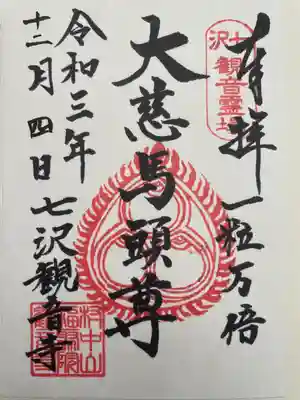 奉拝 一粒万倍
七沢
観音霊場
大慈馬頭尊
令和三年
十二月四日 七沢観音寺